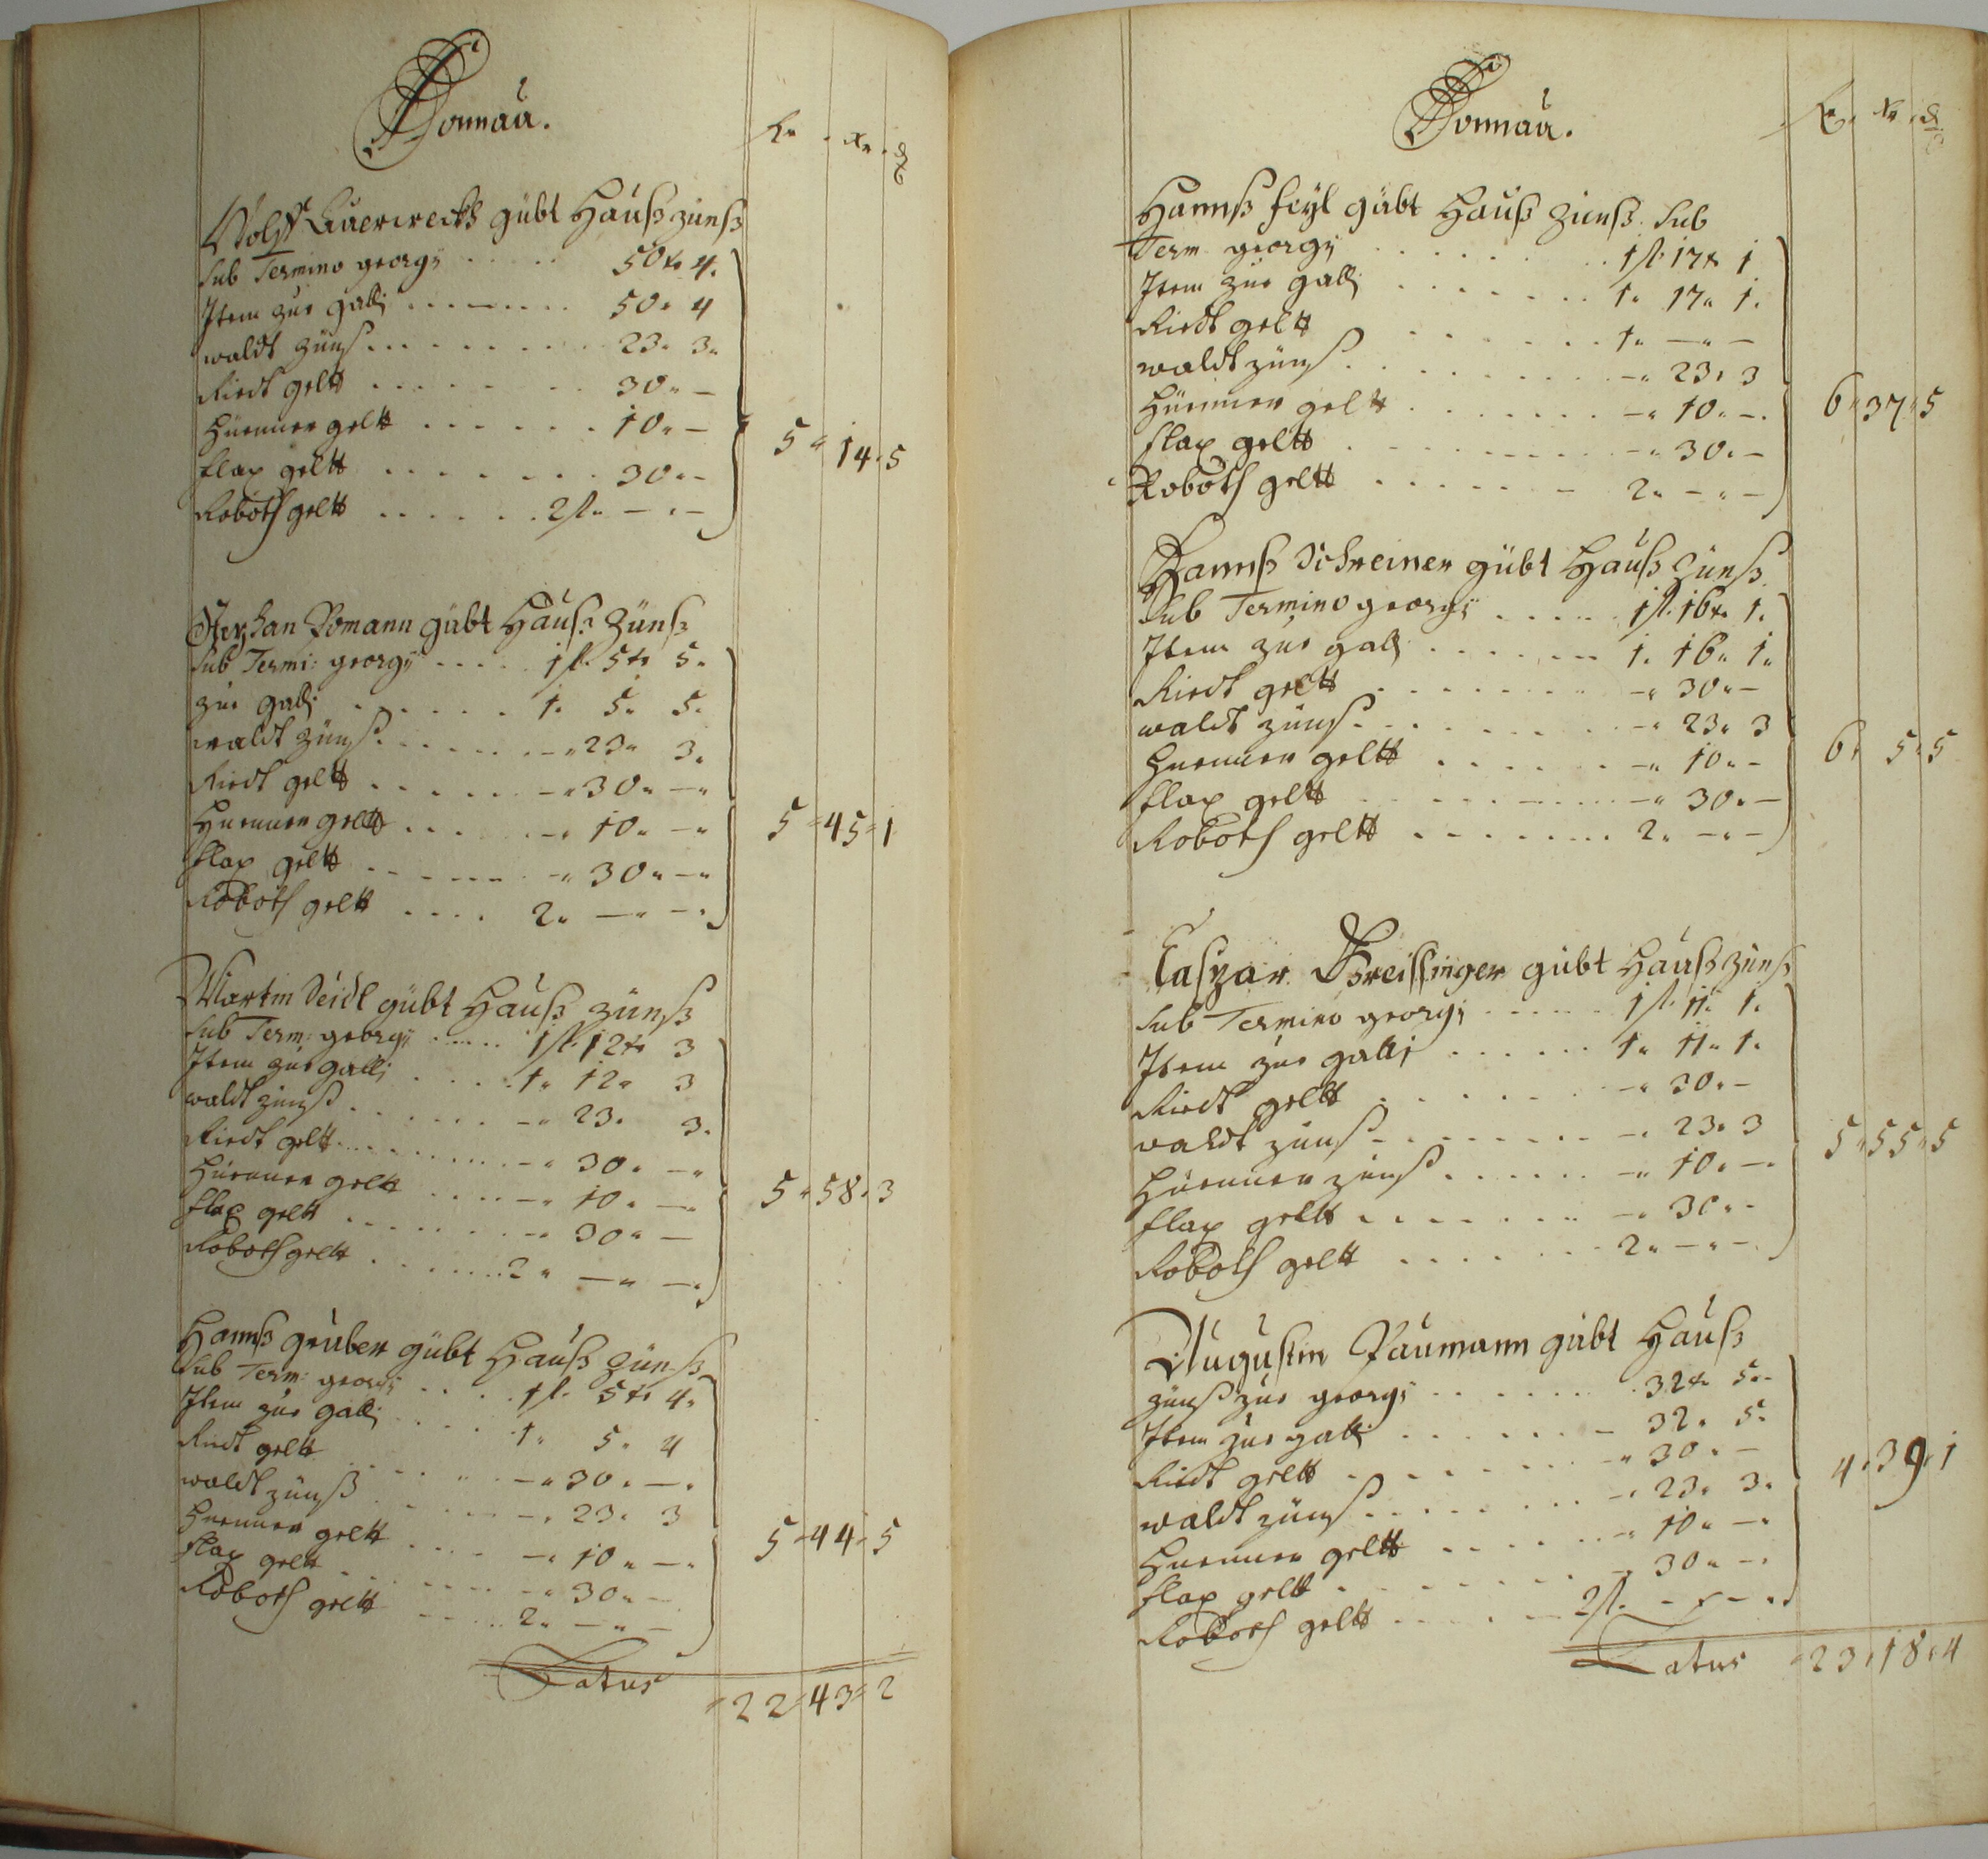 Donnaŭ.
fl. xr. ₰
Wolff Auerweckh gübt Hauß zünß
sub Termino georgÿ . . . . . 50 xr 4.
Item zue galli . . . . . . . 50. 4
waldt zünß . . . . . . . 23. 3.
Riedt geltt . . . . . . . 30. —
Hüenner geltt . . . . . . 10. —
flax geltt . . . . . . . 30. —
Roboth geltt . . . . . . 2 fl. — . —
5 . 14 . 5
Stephan Pomann gübt Hauß Zünß
sub Termi: georgÿ . . . . . 1 fl. 5 xr 5.
zue galli . . . . . . 1. 5. 5.
waldt zünß . . . . . . — . 23. 3.
Riedt geltt . . . . . . — . 30. —
Huenner geltt . . . . . — . 10. —
flax geltt . . . . . . — . 30. —
Roboth geltt . . . . 2. — . —
5 . 45 . 1
Martin Seidl gübt Hauß zünß
sub Term: georgÿ . . . . . 1 fl. 12 xr 3
Item zue galli . . . . . 1. 12. 3
waldt zünß . . . . . . — . 23. 3.
Riedt gelt . . . . . . . — . 30. —
Hüenner geltt . . . . — . 10. —
flax geltt . . . . . . . — . 30. —
Roboth geltt . . . . . . . 2. — . —
5 . 58 . 3
Hannß gruber gübt Hauß zünß
sub Term: georgÿ . . . . 1 fl. 5 xr 4.
Item zue galli . . . . . 1. 5. 4
Riedt geltt . . . . . . — . 30. —
waldt zünß . . . . . . — . 23. 3
Huenner geltt . . . . — . 10. —
flax geltt . . . . . . . — . 30. —
Roboth geltt . . . . . 2. — . —
5 . 44 . 5
Latus 22 . 43 . 2
Donnaŭ.
fl. xr. ₰
Hannß feyl gübt Hauß Zünß. sub
Term georgÿ . . . . . . . 1 fl. 17 xr 1
Item zue galli . . . . . . . 1. 17. 1.
Riedt geltt . . . . . . 1. — . —
waldt zünß . . . . . . . . — . 23. 3
Hüenner geltt . . . . . . . — . 10. —
flax geltt . . . . . . . . — . 30. —
Roboth geltt . . . . . . 2. — . —
6 . 37 . 5
Hannß Schreiner gübt Hauß Zünß
sub Termino georgÿ . . . . . 1 fl. 16 xr 1.
Item zue galli . . . . . . . 1. 16. 1.
Riedt geltt . . . . . . . . — . 30. —
waldt zünß . . . . . . . — . 23. 3
Huenner geltt . . . . . . — . 10. —
flax geltt . . . . . . . . — . 30. —
Roboth geltt . . . . . . . 2. — . —
6 . 5 . 5
Caspar Greissinger gübt Hauß zünß
sub Termino georgÿ . . . . . 1 fl. 11. 1.
Item zue galli . . . . . . 1. 11. 1.
Riedt geltt . . . . . . . — . 30. —
waldt zünß . . . . . . . . — . 23. 3
Hüenner zünß . . . . . . — . 10. —
flax geltt . . . . . . . — . 30. —
Roboth geltt . . . . . . . 2. — . —
5 . 55 . 5
Augustin Paumann gübt Hauß
zünß zue georgÿ . . . . . . 32 xr 5.
Item zue galli . . . . . . — 32. 5.
Riedt geltt . . . . . . . . — . 30. —
waldt zünß . . . . . . . — . 23. 3.
Huenner geltt . . . . . . — . 10. —
flax geltt . . . . . . . . — . 30. —
Roboth geltt . . . . . 2 fl. — . —
4 . 39 . 1
Latus 23 . 18 . 4